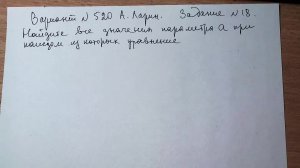 Вариант №520 А. Ларин. Задание №18.
Найдите все значения параметра а при
каждом из которых уравнение